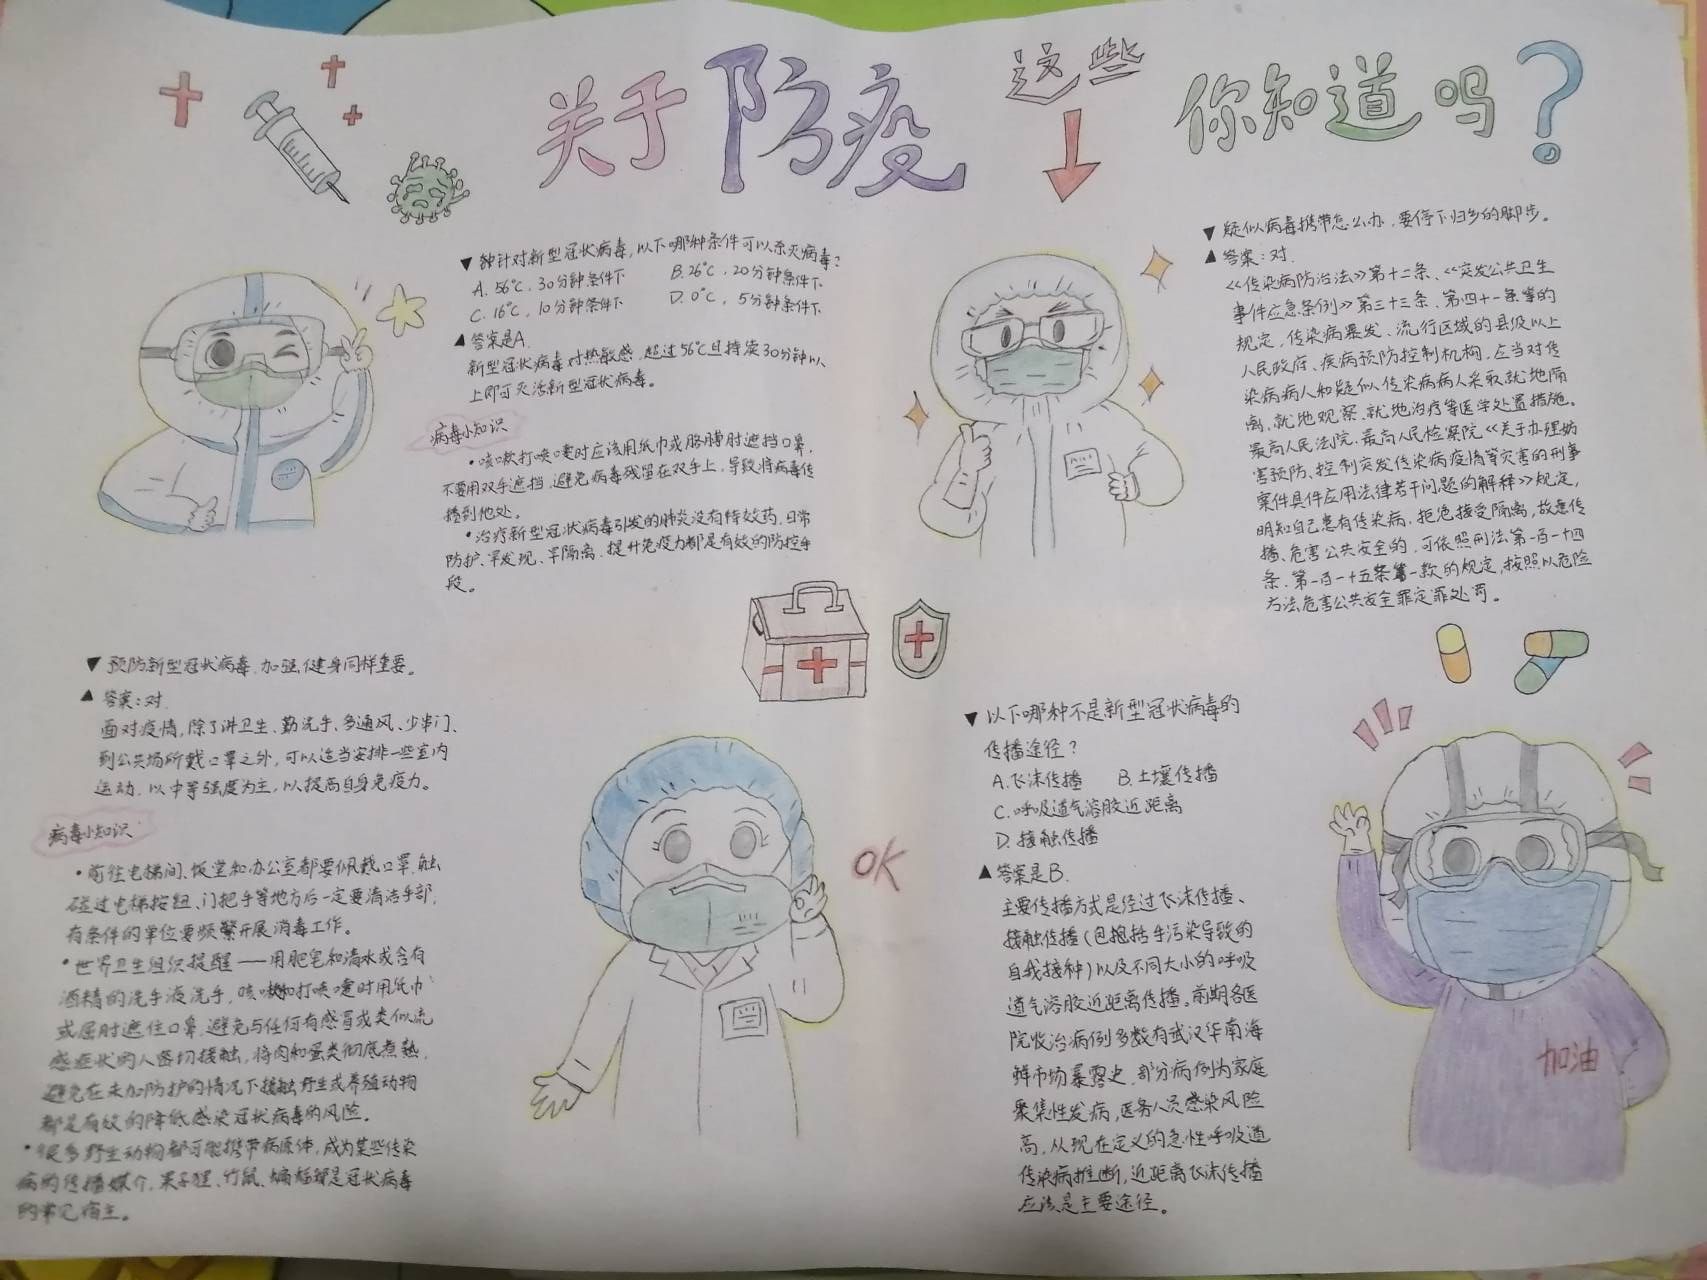 关于防疫 这些 你知道吗?
▼ 钟针对新型冠状病毒，以下哪种条件可以杀灭病毒？
A. 56℃，30分钟条件下 B. 26℃，20分钟条件下
C. 16℃，10分钟条件下 D. 0℃，5分钟条件下
▲ 答案是A.
新型冠状病毒对热敏感，超过56℃且持续30分钟以
上即可灭活新型冠状病毒。
病毒小知识
•咳嗽打喷嚏时应该用纸巾或胳膊肘遮挡口鼻，
不要用双手遮挡，避免病毒残留在双手上，导致将病毒传
播到他处。
•治疗新型冠状病毒引发的肺炎没有特效药，日常
防护、早发现、早隔离、提升免疫力都是有效的防控手
段。
▼ 疑似病毒携带怎么办，要停下归乡的脚步。
▲ 答案：对.
《传染病防治法》第十二条、《突发公共卫生
事件应急条例》第三十三条、第四十一条等的
规定，传染病暴发、流行区域的县级以上
人民政府、疾病预防控制机构，应当对传
染病病人和疑似传染病病人采取就地隔
离，就地观察、就地治疗等医学处置措施。
最高人民法院、最高人民检察院《关于办理妨
害预防、控制突发传染病疫情等灾害的刑事
案件具体应用法律若干问题的解释》规定，
明知自己患有传染病，拒绝接受隔离，故意传
播、危害公共安全的，可依照刑法第一百一十四
条、第一百一十五条第一款的规定，按照以危险
方法危害公共安全罪定罪处罚。
▼ 预防新型冠状病毒，加强健身同样重要。
▲ 答案：对.
面对疫情，除了讲卫生、勤洗手、多通风、少串门、
到公共场所戴口罩之外，可以适当安排一些室内
运动，以中等强度为主，以提高自身免疫力。
病毒小知识
•前往电梯间、饭堂和办公室都要佩戴口罩，触
碰过电梯按钮、门把手等地方后一定要清洁手部，
有条件的单位要频繁开展消毒工作。
•世界卫生组织提醒——用肥皂和清水或含有
酒精的洗手液洗手，咳嗽和打喷嚏时用纸巾
或屈肘遮住口鼻，避免与任何有感冒或类似流
感症状的人密切接触，将肉和蛋类彻底煮熟，
避免在未加防护的情况下接触野生或养殖动物
都是有效的降低感染冠状病毒的风险。
•很多野生动物都可能携带病原体，成为某些传染
病的传播媒介，果子狸、竹鼠、蝙蝠都是冠状病毒
的常见宿主。
OK
▼ 以下哪种不是新型冠状病毒的
传播途径？
A. 飞沫传播 B. 土壤传播
C. 呼吸道气溶胶近距离
D. 接触传播
▲ 答案是B.
主要传播方式是经过飞沫传播、
接触传播（包括手污染导致的
自我接种）以及不同大小的呼吸
道气溶胶近距离传播。前期各医
院收治病例多数有武汉华南海
鲜市场暴露史，部分病例为家庭
聚集性发病，医务人员感染风险
高，从现在定义的急性呼吸道
传染病推断，近距离飞沫传播
应该是主要途径。
加油